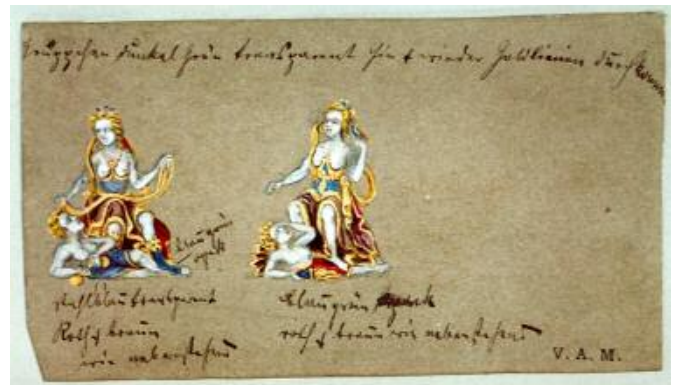 Grüppchen dunkel grün transparent hin & wieder Goldlinien durch
blaugrün
opak
stahlblau transparent
Roth & braun
wie nebenstehend
blaugrün opack
roth & braun wie nebenstehend
V. A. M.